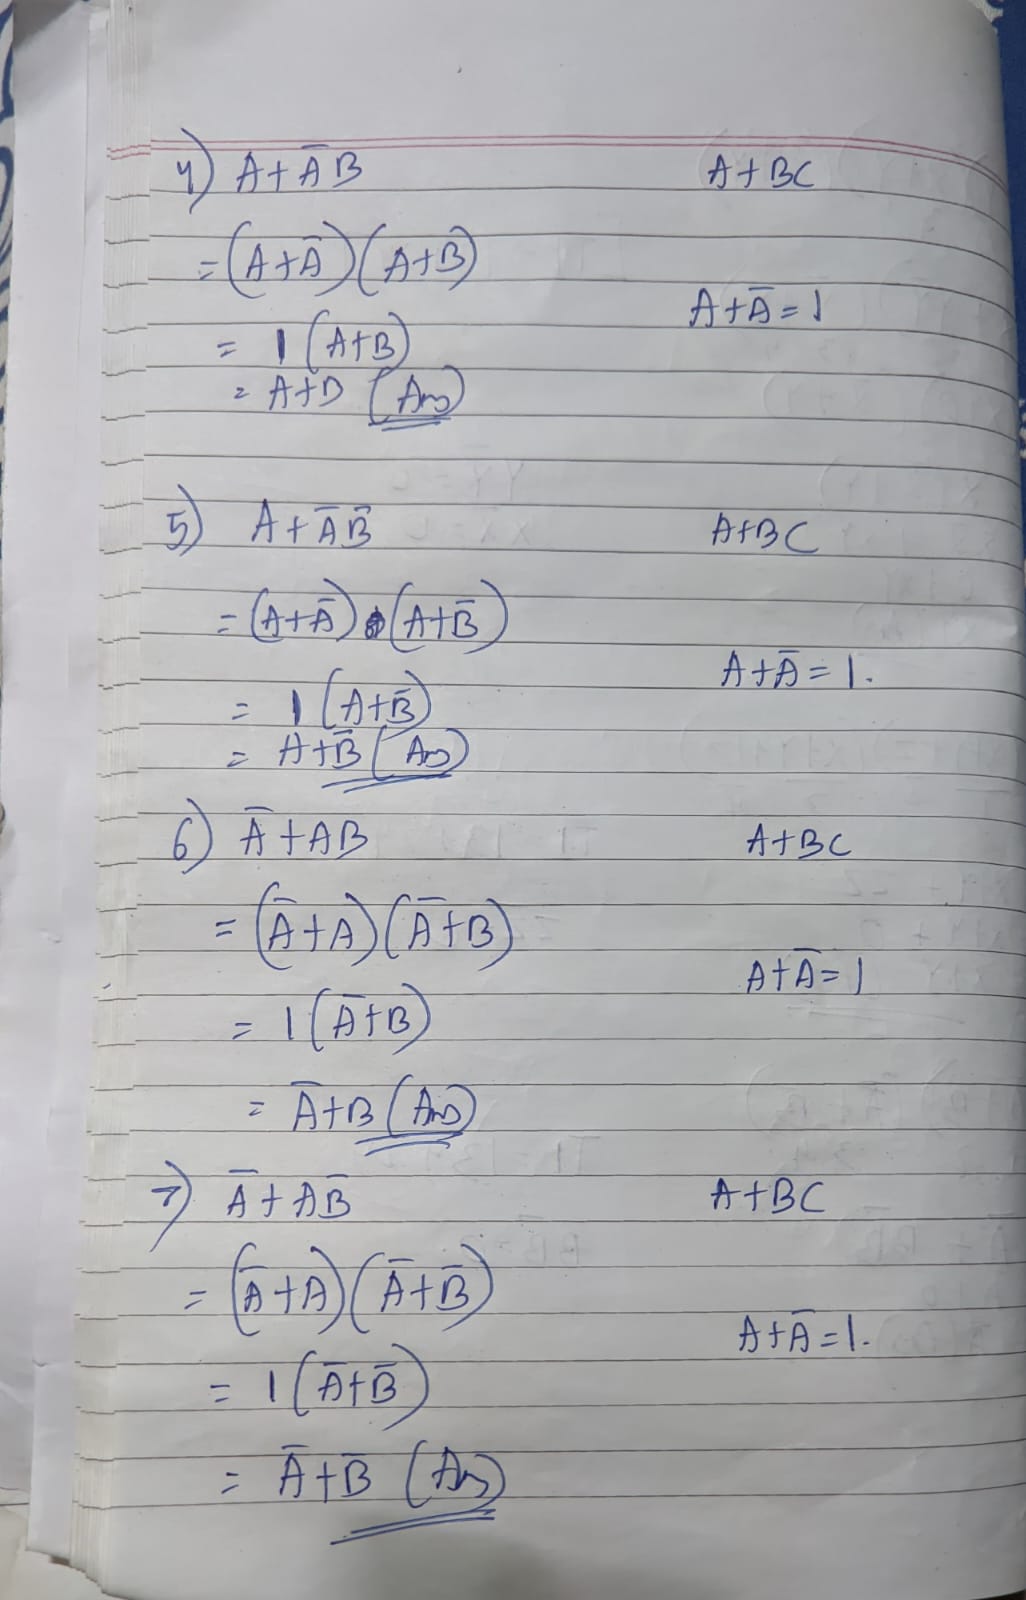 4) A + A̅B A + BC
= (A + A̅) (A + B)
A + A̅ = 1
= 1 (A + B)
= A + B (Ans)
5) A + A̅ B̅ A + BC
= (A + A̅) . (A + B̅)
A + A̅ = 1.
= 1 (A + B̅)
= A + B̅ (Ans)
6) A̅ + AB A + BC
= (A̅ + A) (A̅ + B)
A + A̅ = 1
= 1 (A̅ + B)
= A̅ + B (Ans)
7) A̅ + AB̅ A + BC
= (A̅ + A) (A̅ + B̅)
A + A̅ = 1.
= 1 (A̅ + B̅)
= A̅ + B̅ (Ans)